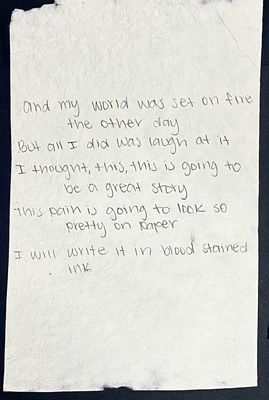 and my world was set on fire
the other day
But all I did was laugh at it
I thought, this, this is going to
be a great story
This pain is going to look so
pretty on paper
I will write it in blood stained
ink